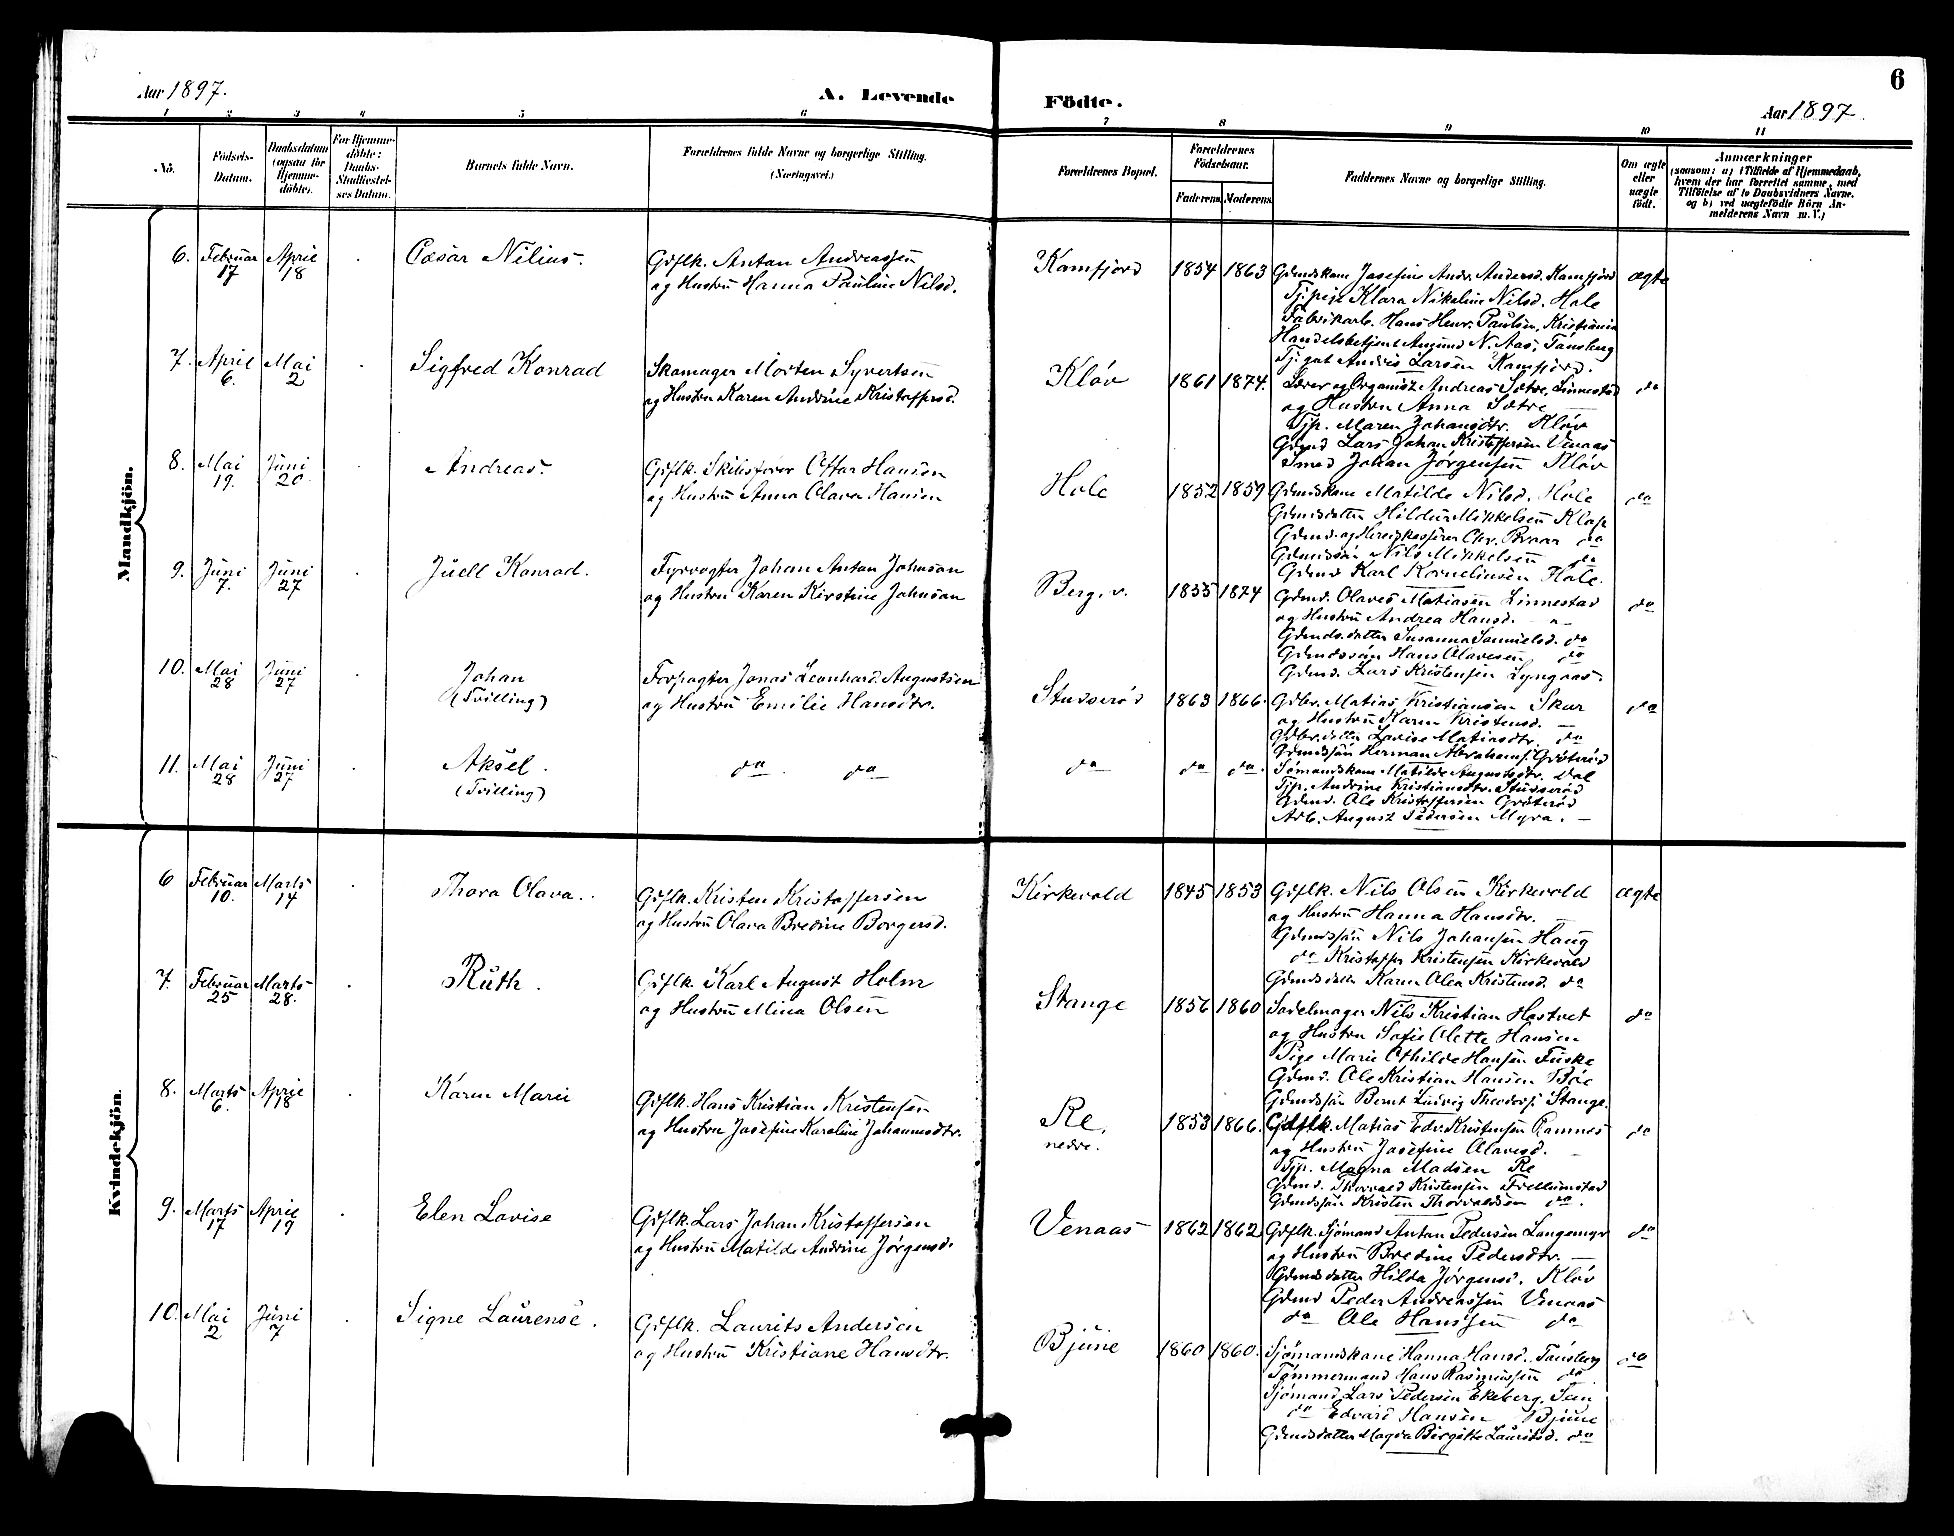 6
Aar 1897.
A. Levende Födte.
Aar 1897.
1 2 3 4 5 6 7 8 9 10 11
No.
Födsels-Datum.
Daabsdatum (ogsaa for Hjemmedöbte).
For Hjemmedöbte: Daabs-Stadfæstelses Datum.
Barnets fulde Navn.
Forældrenes fulde Navne og borgerlige Stilling. (Næringsvei.)
Forældrenes Bopæl.
Forældrenes Födselsaar.
Faderens. Moderens.
Faddernes Navne og borgerlige Stilling.
Om ægte eller uægte födt.
Anmærkninger
(saasom: a) i Tilfælde af Hjemmedaab,
hvem der har forrettet samme, med
Tilföielse af to Daabsvidners Navne.
og b) ved uægtefödte Börn An-
melderens Navn m. V.)
Mandkjön.
6. Februar 17 April 18 Cæsar Nilius.
Gdflk. Anton Andreassen
og Hustru Hanna Pauline Nilsd.
Kamfjord 1854 1863
Gdmdskone Josefine Andr. Andersd. Kamfjord ægte
Tj.pige Klara Nikoline Nilsd. Hole
Fabrikarb. Hans Henr. Paulsen, Kristiania
Handelsbetjent Amund N. Aas, Tønsberg
Tj.gut Andreas Larsen Kamfjord.
7. April 6. Mai 2 Sigfred Konrad
Skomager Morten Syvertsen
og Hustru Karen Andrine Kristoffersd.
Kløv 1861 1874.
Lærer og Organist Andreas Sætre, Linnestad do
og Hustru Anna Sætre —
Tjp. Maren Johansdtr. Kløv
Gdmd Lars Johan Kristoffersen Venaas
Smed Johan Jørgensen Kløv
8. Mai 19. Juni 20. Andreas.
Gdflk. Skibsfører Ottar Hansen
og Hustru Anna Olava Hansen
Hole 1852 1859
Gdmdskone Matilde Nilsd. Hole do
Gdmdsdatter Hildur Mikkelsen Klop
Gdmd. og Herredskasserer Chr. Braar do
Gdmdssøn Nils Mikkelsen do
Gdmd Karl Korneliusen Hole.
9. Juni 7. Juni 27 Juell Konrad.
Fyrvogter Johan Anton Johnson
og Hustru Karen Kirstine Johnson
Berg, v. 1855 1874
Gdmd. Olaves Matiasen Linnestad do
og Hustru Andrea Hansd. - " -
Gdmds.datter Susanna Samuelsd. do
Gdmdssøn Hans Olavesen do
Gdmd. Lars Kristensen Lyngaas.
10. Mai 28 Juni 27 Johan
(Tvilling)
Forpagter Jonas Leonhard Augustsen
og Hustru Emilie Hansdtr.
Studserød 1863 1866.
Gdbr. Matias Kristiansen Skar do
og Hustru Karen Kristensd. —
Gdbr.datter Lovise Matiasdtr. do
Gdmdssøn Herman Abrahams. Grøterød
11. Mai 28 Juni 27 Aksel.
(Tvilling)
do do do do do.
Sømandskone Matilde Augustsdtr. Dal
Tjp. Andrine Kristiansdtr. Studserød
Gdmd. Ole Kristoffersen Grøterød
Arb. August Pedersen Myra. —
Kvindekjön.
6 Februar 10. Marts 14 Thora Olava..
Gdflk. Kristen Kristoffersen
og Hustru Olava Bredine Borgersd.
Kirkevold 1845 1853
Gdflk. Nils Olsen Kirkevold ægte
og Hustru Hanna Hansdtr. —
Gdmdssøn Nils Johansen Haug
do Kristoffer Kristensen Kirkevold
Gdmdsdatter Karen Olea Kristensd. do
7. Februar 25 Marts 28. Ruth.
Gdflk. Karl August Holm
og Hustru Mina Olsen
Stange 1856 1860
Sadelmager Nils Kristian Hastvet do
og Hustru Sofie Olette Hansen
Pige Marie Othilde Hansen Fuske
Gdmd. Ole Kristian Hansen Bøe
Gdmdssøn Bernt Ludvig Theodors. Stange.
8. Marts 6. April 18 Karen Marie
Gdflk. Hans Kristian Kristensen
og Hustru Josefine Karoline Johannesdtr.
Re, nedre. 1853 1866.
Gdflk. Matias Edv. Kristensen Ramnes do
og Hustru Josefine Olavesd. —
Tjp. Magna Madsen Re
Gdmd. Thorvald Kristensen Frellumstad
Gdmdssøn Kristen Thorvaldsen do.
9. Marts 17 April 19 Elen Lovise
Gdflk. Lars Johan Kristoffersen
og Hustru Matilde Andrine Jørgensd.
Venaas 1862 1862
Gdflk. Sjømand Anton Pedersen Langemyr do
og Hustru Bredine Pedersdtr. —
Gdmdsdatter Hilda Jørgensd. Kløv
Gdmd Peder Andreassen Venaas
do Ole Hanssen do
10. Mai 2 Juni 7 Signe Laurense.
Gdflk. Laurits Andersen
og Hustru Kristiane Hansdtr.
Bjune 1860 1860.
Sjømandskone Hanna Hansd. Tønsberg do
Tømmermand Hans Rasmussen do
Sjømand Lars Pedersen Ekeberg, Sem
do Edvard Hansen Bjune
Gdmdsdatter Magda Birgitte Lauritsd. do